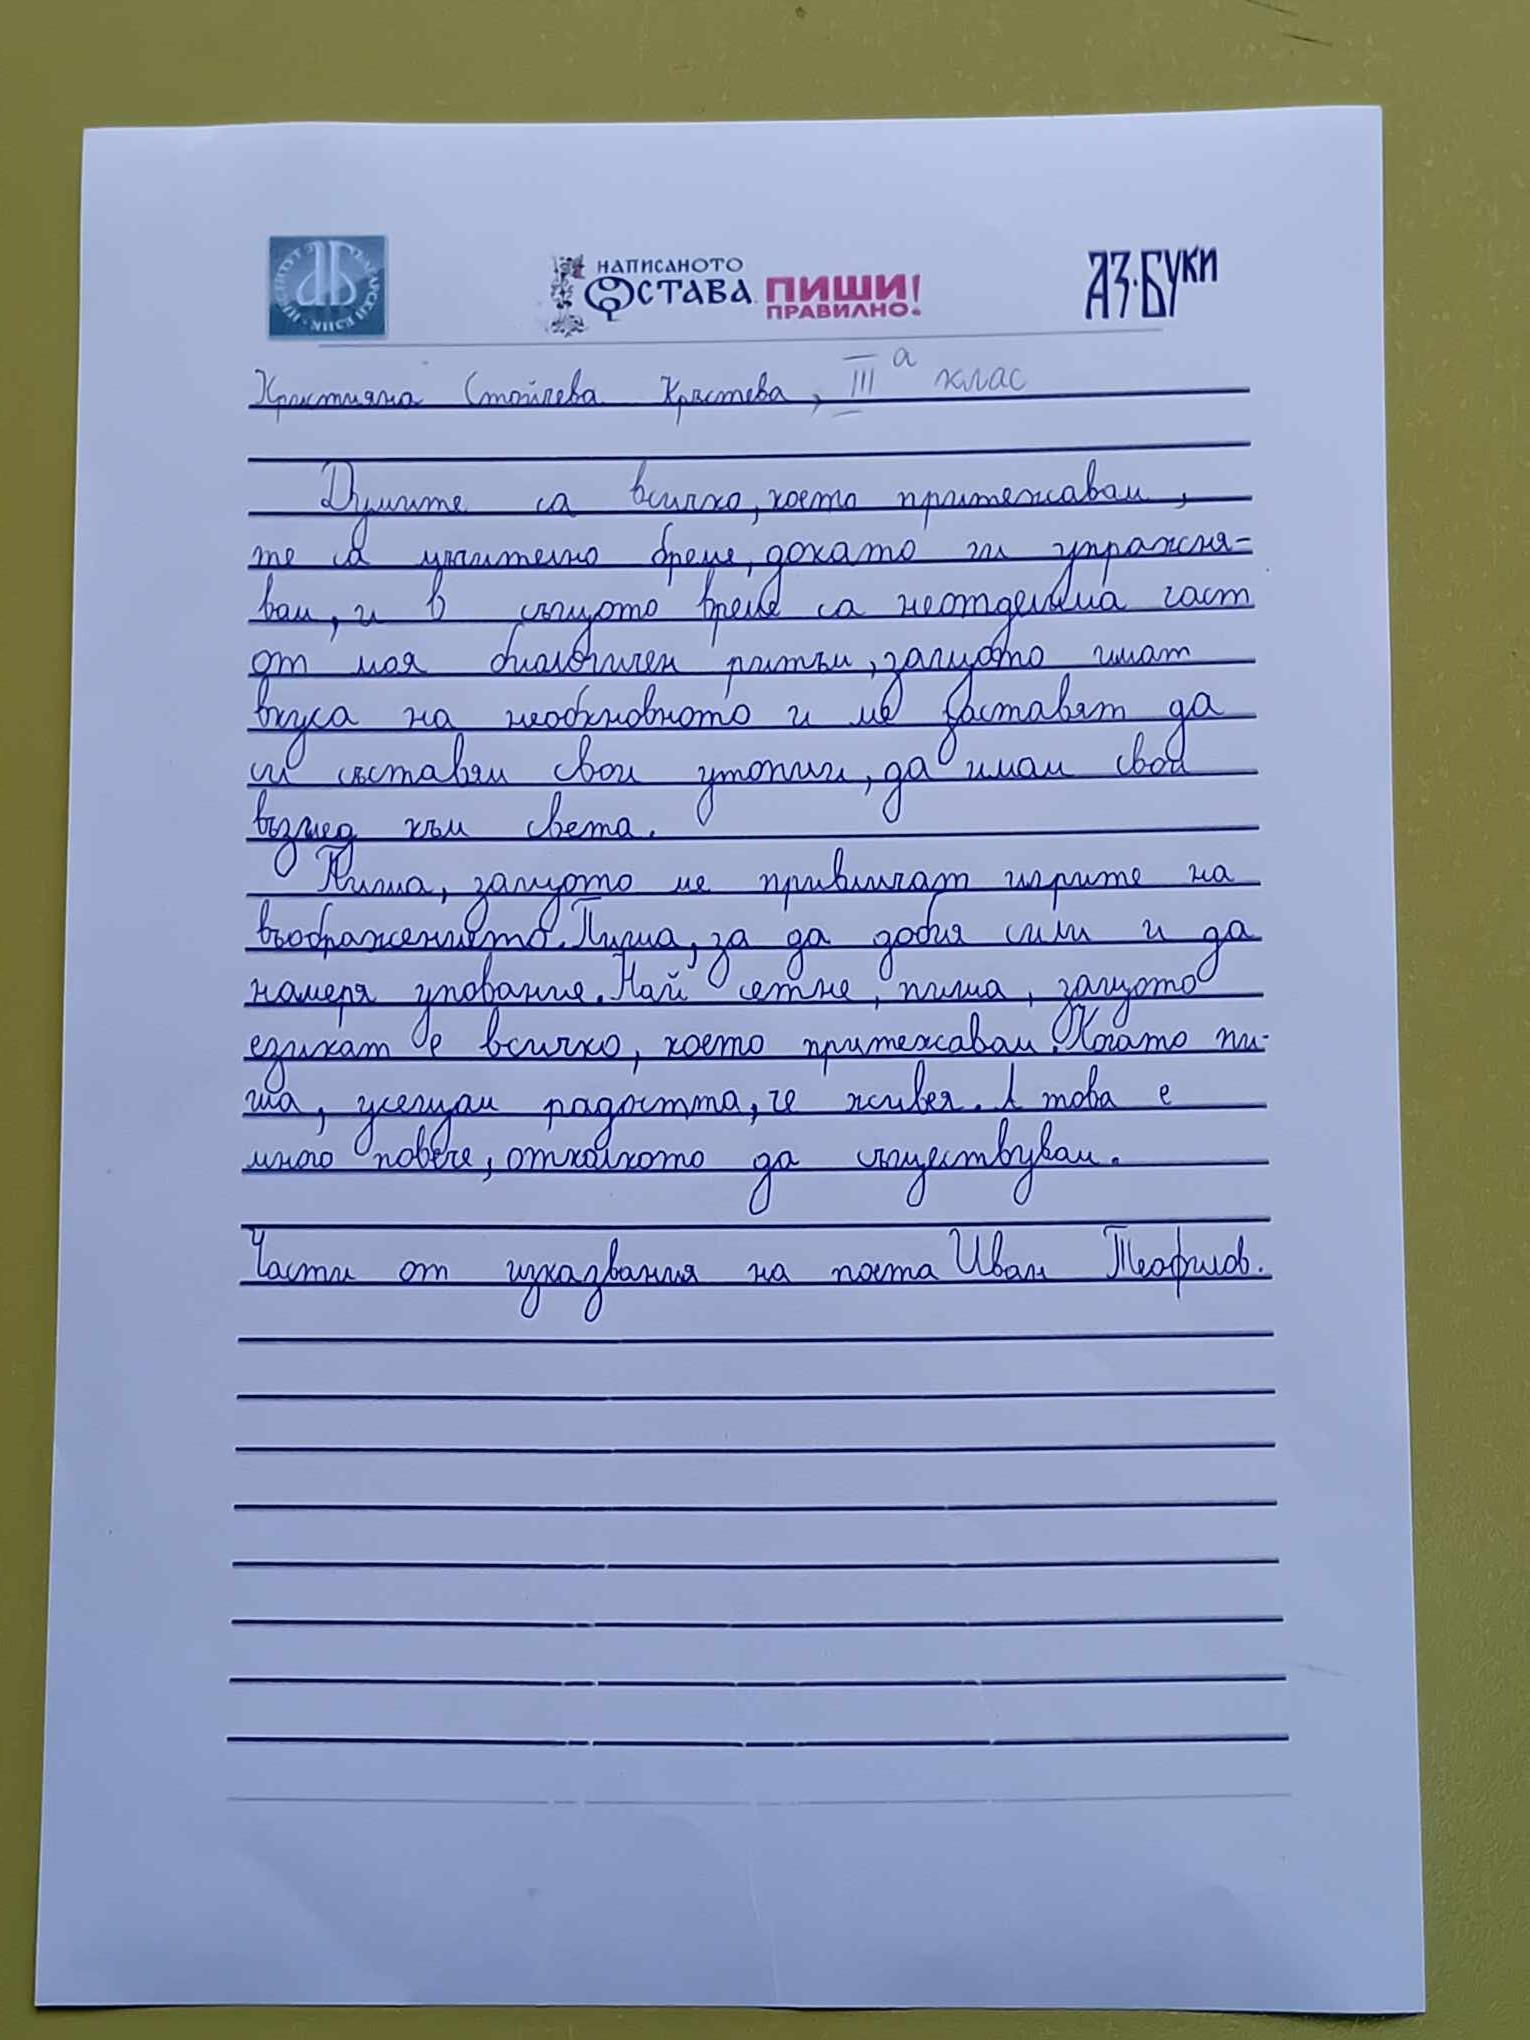 ИНСТИТУТ ЗА БЪЛГАРСКИ ЕЗИК
НАПИСАНОТО
ОСТАВА. ПИШИ
ПРАВИЛНО!
АЗ·БУКИ
Кристияна Стойчева Кръстева, III а клас
Думите са всичко, което притежавам,
те са мъчително бреме, докато ги упражня-
вам, и в същото време са неотделима част
от моя биологичен ритъм, защото имат
вкуса на необкновното и ме заставят да
си съставям свои утопии, да имам свой
възглед към света.
Пиша, защото ме привличат игрите на
въображението. Пиша, за да добия сили и да
намеря упование. Най сетне, пиша, защото
езикат е всичко, което притежавам. Когато пи-
ша, усещам радостта, че живея. А това е
много повече, отколкото да съществувам.
Части от изказвания на поета Иван Теофилов.